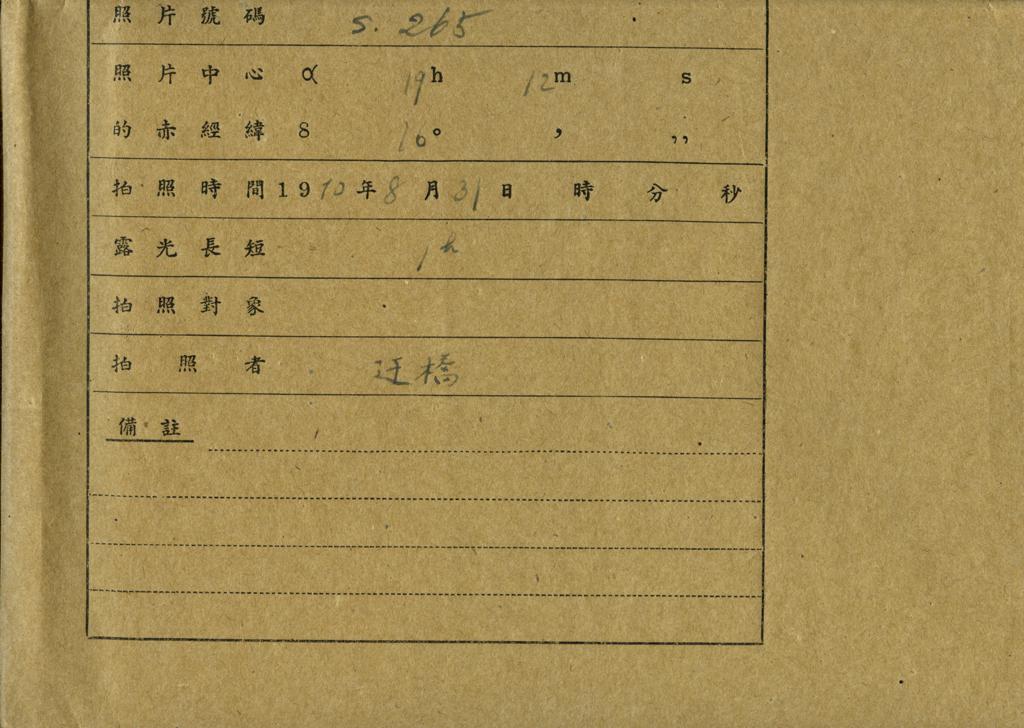 照片號碼 S. 265
照片中心 α 19h 12m s
的赤經緯 δ 10° ’ ’’
拍照時間 1910年8月31日 時 分 秒
露光長短 1h
拍照對象
拍照者 橋
備註